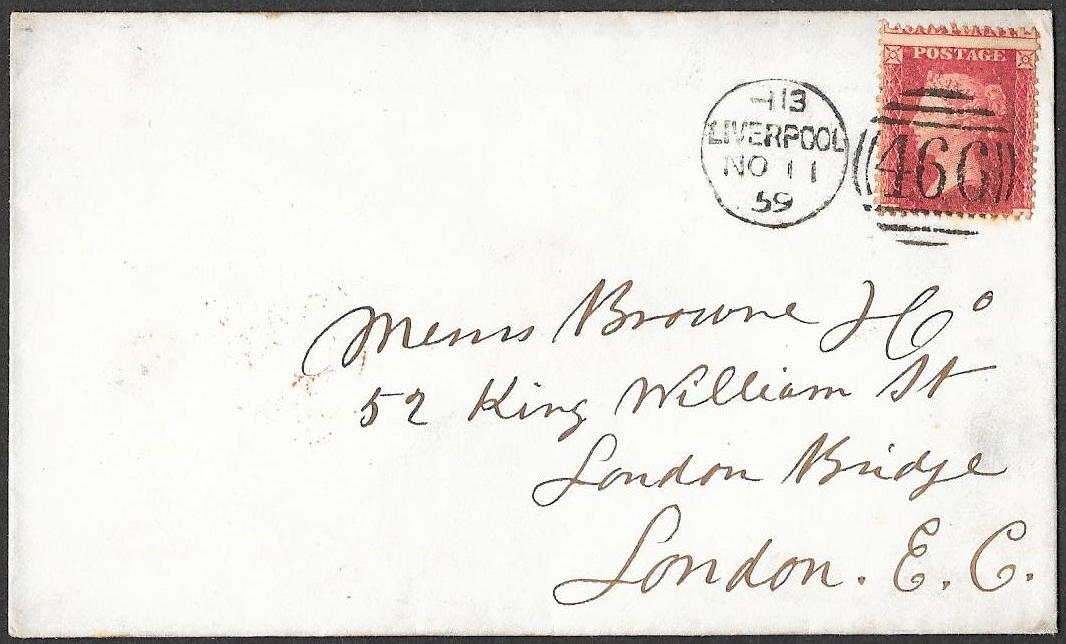 POSTAGE
113
LIVERPOOL
NO 11
59
466
Messrs Browne & Co
52 King William St
London Bridge
London. E. C.